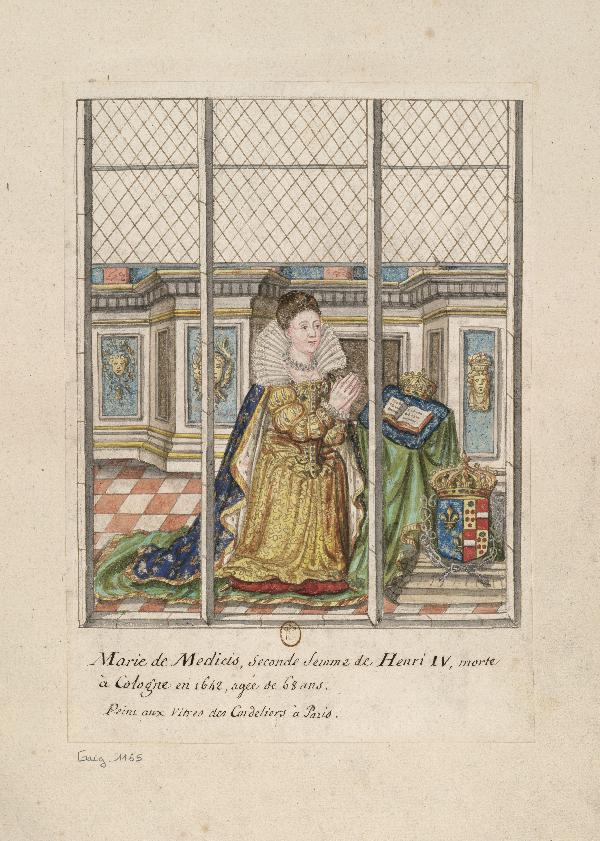 Marie de Medicis, Seconde femme de Henri IV, morte
à Cologne en 1642, agée de 68 ans.
Peint aux Vitres des Cordeliers à Paris.
Gaig. 1165